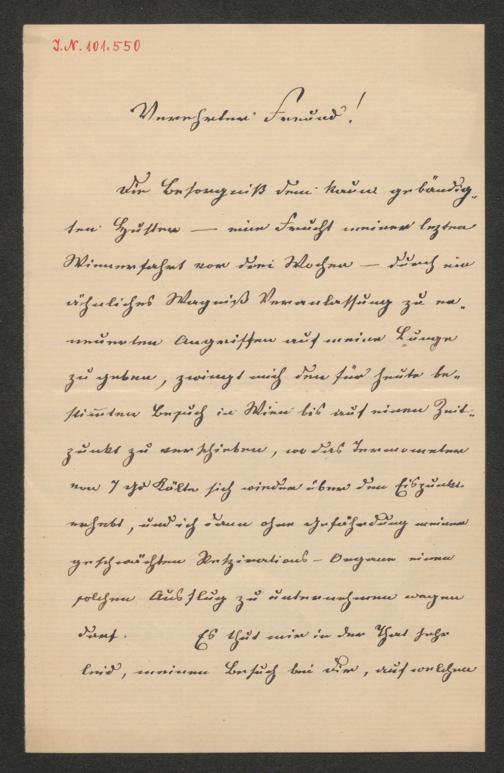 J.N. 101.550
Verehrter Freund!
Die Besorgniß dem kaum gebändig-
ten Husten — eine Frucht meiner lezten
Wienerfahrt vor drei Wochen — durch ein
ähnliches Wagniß Veranlassung zu er-
neuerten Angriffen auf meine Lunge
zu geben, zwingt mich den für heute be-
stimmten Besuch in Wien bis auf einen Zeit-
punkt zu verschieben, wo das Termometer
von 7 Gd Kälte sich wieder über den Eispunkt
erhebt, und ich dann ohne Gefährdung meiner
geschwächten Respirations-Organe einen
solchen Ausflug zu unternehmen wagen
darf. Es thut mir in der That sehr
leid, meinen Besuch bei Dir, auf welchen